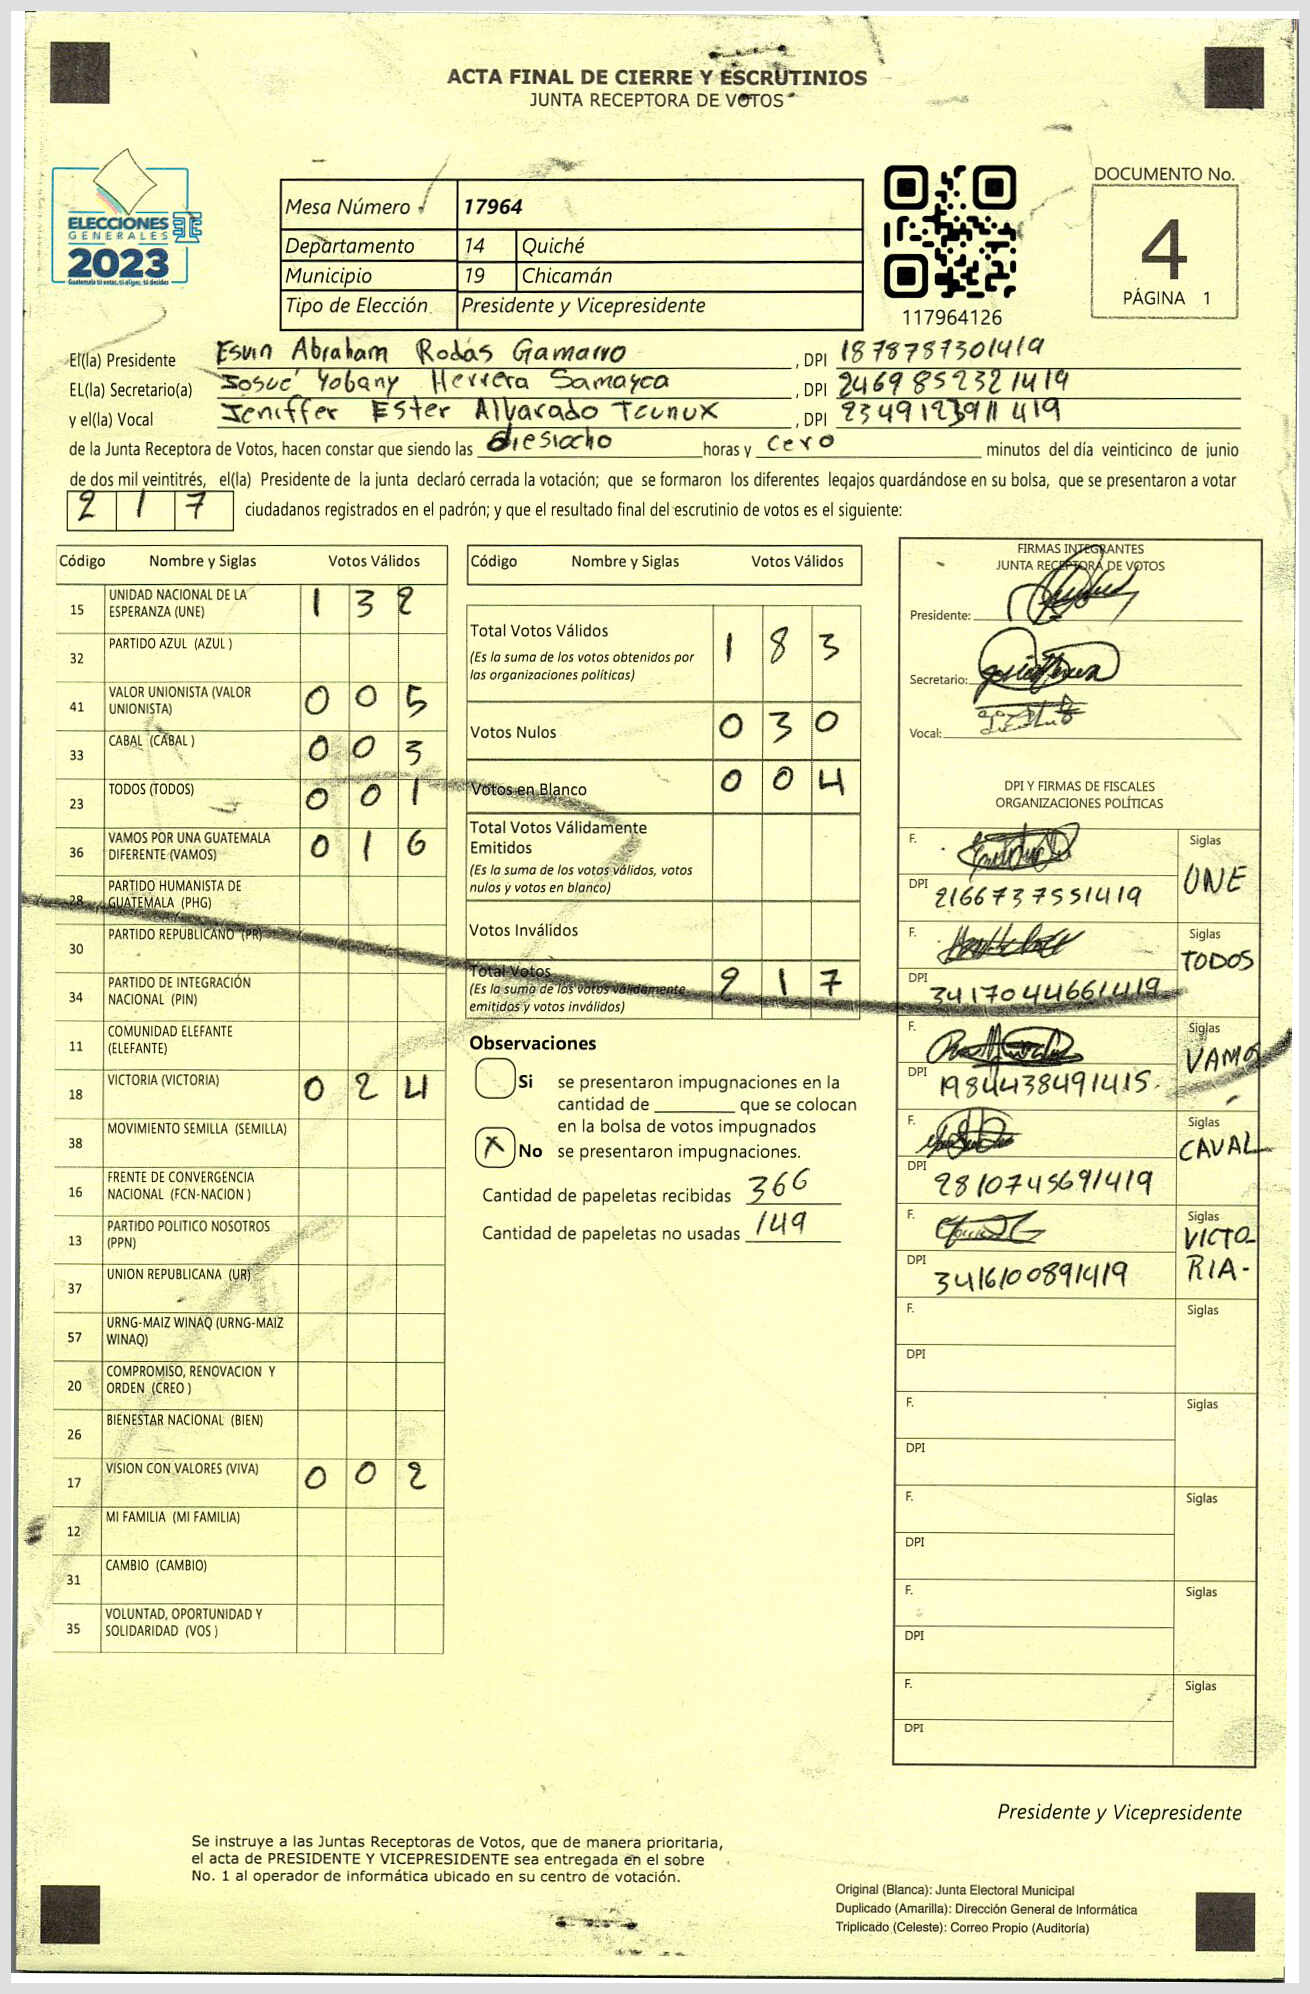 ACTA FINAL DE CIERRE Y ESCRUTINIOS
JUNTA RECEPTORA DE VOTOS
ELECCIONES
GENERALES
2023
Guatemala tú votas, tú eliges, tú decides
Mesa Número 17964
Departamento 14 Quiché
Municipio 19 Chicamán
Tipo de Elección Presidente y Vicepresidente
117964126
DOCUMENTO No.
4
PÁGINA 1
El(la) Presidente Esvin Abraham Rodas Gamarro, DPI 1878787301419
EL(la) Secretario(a) Josué Yobany Herrera Samayoa, DPI 2469852321419
y el(la) Vocal Jeniffer Ester Alvarado Tcunux, DPI 2349123911419
de la Junta Receptora de Votos, hacen constar que siendo las diesiocho horas y cero minutos del día veinticinco de junio
de dos mil veintitrés, el(la) Presidente de la junta declaró cerrada la votación; que se formaron los diferentes legajos guardándose en su bolsa, que se presentaron a votar
217 ciudadanos registrados en el padrón; y que el resultado final del escrutinio de votos es el siguiente:
Código Nombre y Siglas Votos Válidos
15 UNIDAD NACIONAL DE LA ESPERANZA (UNE) 1 3 2
32 PARTIDO AZUL (AZUL )
41 VALOR UNIONISTA (VALOR UNIONISTA) 0 0 5
33 CABAL (CABAL ) 0 0 3
23 TODOS (TODOS) 0 0 1
36 VAMOS POR UNA GUATEMALA DIFERENTE (VAMOS) 0 1 6
28 PARTIDO HUMANISTA DE GUATEMALA (PHG)
30 PARTIDO REPUBLICANO (PR)
34 PARTIDO DE INTEGRACIÓN NACIONAL (PIN)
11 COMUNIDAD ELEFANTE (ELEFANTE)
18 VICTORIA (VICTORIA) 0 2 4
38 MOVIMIENTO SEMILLA (SEMILLA)
16 FRENTE DE CONVERGENCIA NACIONAL (FCN-NACION )
13 PARTIDO POLITICO NOSOTROS (PPN)
37 UNION REPUBLICANA (UR)
57 URNG-MAIZ WINAQ (URNG-MAIZ WINAQ)
20 COMPROMISO, RENOVACION Y ORDEN (CREO )
26 BIENESTAR NACIONAL (BIEN)
17 VISION CON VALORES (VIVA) 0 0 2
12 MI FAMILIA (MI FAMILIA)
31 CAMBIO (CAMBIO)
35 VOLUNTAD, OPORTUNIDAD Y SOLIDARIDAD (VOS )
Código Nombre y Siglas Votos Válidos
Total Votos Válidos 1 8 3
(Es la suma de los votos obtenidos por
las organizaciones políticas)
Votos Nulos 0 3 0
Votos en Blanco 0 0 4
Total Votos Válidamente
Emitidos
(Es la suma de los votos válidos, votos
nulos y votos en blanco)
Votos Inválidos
Total Votos 2 1 7
(Es la suma de los votos válidamente
emitidos y votos inválidos)
Observaciones
Si se presentaron impugnaciones en la
cantidad de ________ que se colocan
en la bolsa de votos impugnados
X No se presentaron impugnaciones.
Cantidad de papeletas recibidas 366
Cantidad de papeletas no usadas 149
FIRMAS INTEGRANTES
JUNTA RECEPTORA DE VOTOS
Presidente:
Secretario:
Vocal:
DPI Y FIRMAS DE FISCALES
ORGANIZACIONES POLÍTICAS
F. Siglas
DPI 2166737551419 UNE
F. Siglas
DPI 3417044661419 TODOS
F. Siglas
DPI 1984438491415. VAMOS
F. Siglas
DPI 2810745691419 CAVAL
F. Siglas
DPI 3416100891419 VICTO-
RIA-
F. Siglas
DPI
F. Siglas
DPI
F. Siglas
DPI
F. Siglas
DPI
F. Siglas
DPI
Presidente y Vicepresidente
Se instruye a las Juntas Receptoras de Votos, que de manera prioritaria,
el acta de PRESIDENTE Y VICEPRESIDENTE sea entregada en el sobre
No. 1 al operador de informática ubicado en su centro de votación.
Original (Blanca): Junta Electoral Municipal
Duplicado (Amarilla): Dirección General de Informática
Triplicado (Celeste): Correo Propio (Auditoría)